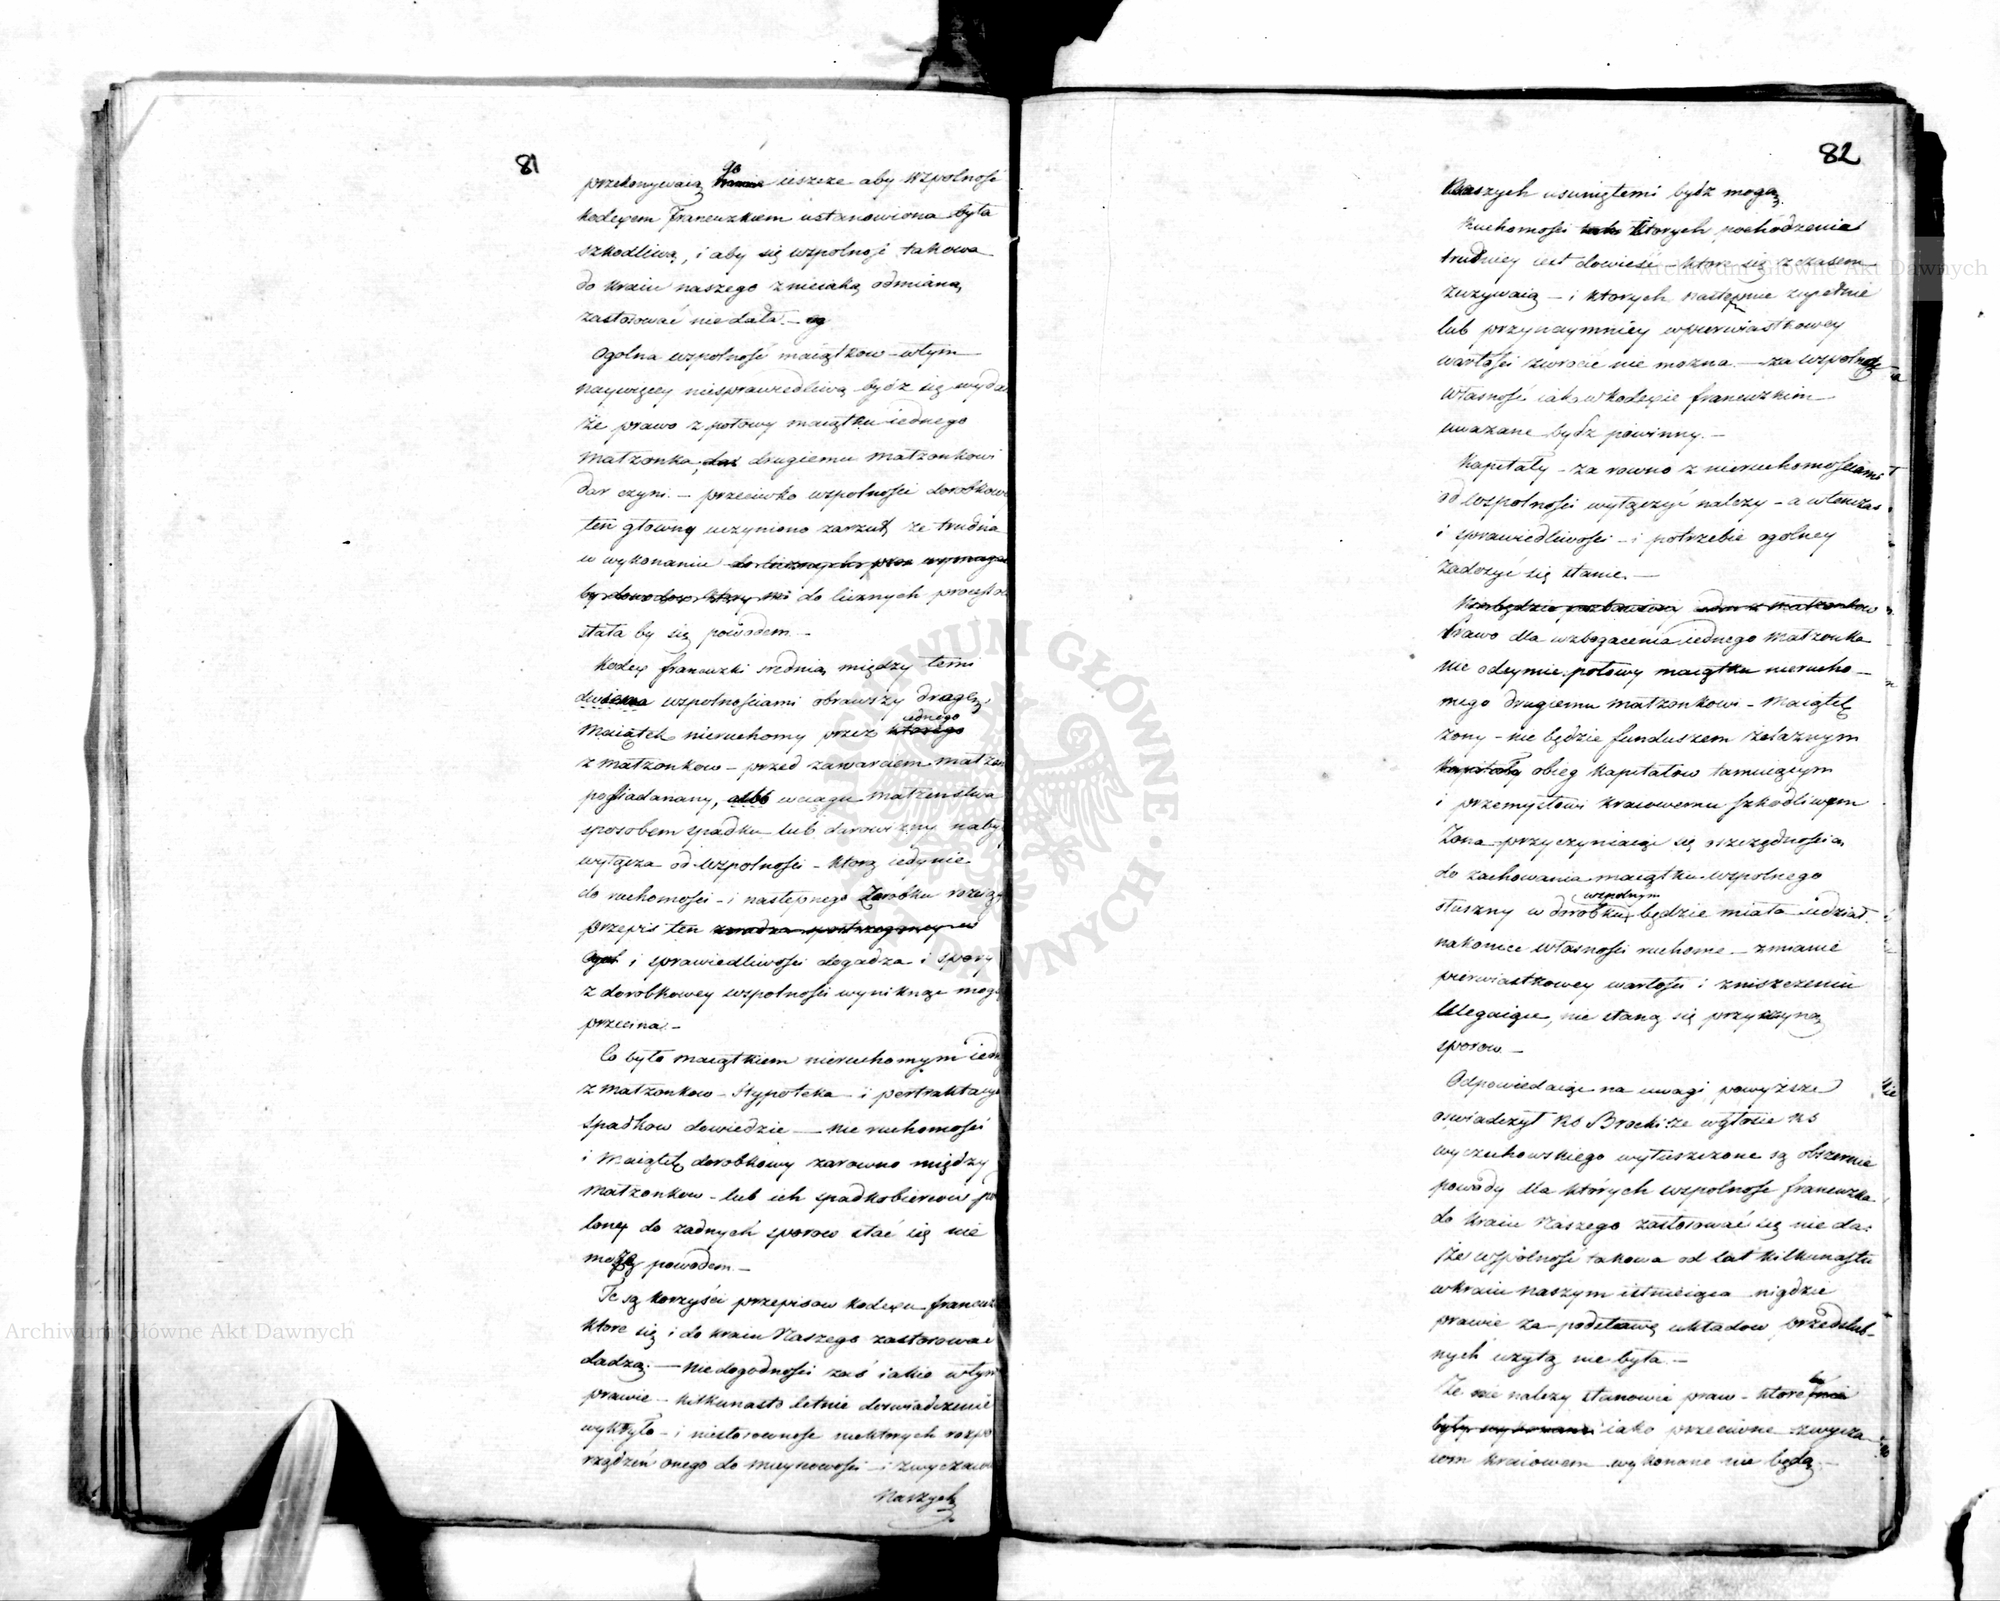 81
przekonywaią go ieszcze aby wspolnosć
kodexem Francuzkiem ustanowiona była
szkodliwą, i aby się wspolność takowa
do kraiu naszego z nieiaką odmianą,
zastosować nie dała. –
Ogolna wspolność maiątkow – w tym
naywięcey niesprawiedliwą bydz się wyda
że prawo z połowy maiątku iednego
Małzonka, drugiemu Małzonkowi
dar czyni. – przeciwko wspolnosci dorobkow
ten głowny uczyniono zarzut, ze trudna
w wykonaniu
do licznych processo
stała by się powodem. –
Kodex francuzki srednią między temi
dwiema wspolnosciami obrawszy drogę,
Maiątek nieruchomy przez iednego
z Małzonkow – przed zawarciem Małzen
posiadanany, albo w ciągu Małzenstwa
sposobem spadku lub darowizny naby
wyłącza od wspolnosci – ktorą iedynie
do ruchomosci – i następnego Zarobku rosciąg
przepis ten
i sprawiedliwosci dogadza i spory
z dorobkowey wspolnosci wyniknąc mogą
przecina. –
Co było maiątkiem nieruchomym iedn
z Małzonkow – Hypoteka – i pertraktacye
spadkow dowiedzie — nie ruchomosci
i Maiątek dorobkowy zarowno między
Małzonkow – lub ich spadkobiercow po
lony do zadnych sporow stać się nie
mogą powodem. –
Te są korzyści przepisow kodexu francuz
ktore się i do kraiu Naszego zastosować
dadzą; — niedogodnosci zaś iakie w tym
prawie – kilkunasto letnie doswiadczenie
wykryło – i niestosownosc niektorych rozpo
rządzeń onego do mieyscowosci – i zwyczaiow
Naszych
82
Naszych usuniętemi bydz mogą.
Ruchomosci ktorych pochodzenia
trudniey iest dowiesć – ktore się z czasem
zuzywaią – i ktorych następnie zupełnie
lub przynaymniey w pierwiastkowey
wartosci zwrocić nie mozna – za wspolną
własność iak w kodexie francuzkim
uwazane bydz powinny. –
Kapitały – za rowno z nieruchomosciami
od wspolnosci wyłączyć nalezy – a wtenczas
i sprawiedliwosci – i potrzebie ogolney
zadosyć się stanie. —
Prawo dla wzbogacenia iednego Małzonka
nie odeymie połowy maiątku nierucho –
mego drugiemu Małzonkowi – Maiątek
zony – nie będzie funduszem żelaznym
obieg kapitałow tamuiącym
i przemysłowi kraiowemu szkodliwym
Zona przyczyniaiąc się oszczędnoscią
do zachowania maiątku wspolnego
słuszny w dorobku wspolnym będzie miała udział.
nakoniec własnosci ruchome – zmianie
pierwiastkowey wartosci i zniszczeniu
Ulegaiące, nie staną się przyczyną
sporow –
Odpowiedaiąc na uwagi powyższe
oswiadczył Ks Brocki: że w głosie Ks
Wyczechowskiego wyłuszczone są obszernie
powody dla których wspolnosc francuzka
do kraiu Naszego zastosować się nie da:
Że wspolność takowa od lat kilkunastu
w kraiu naszym istnieiąca nigdzie
prawie za podstawę układow przedslub –
nych uzytą nie była. –
Że nie nalezy stanowic praw – ktore by
iako przeciwne zwycza –
iom kraiowem wykonane nie będą. –